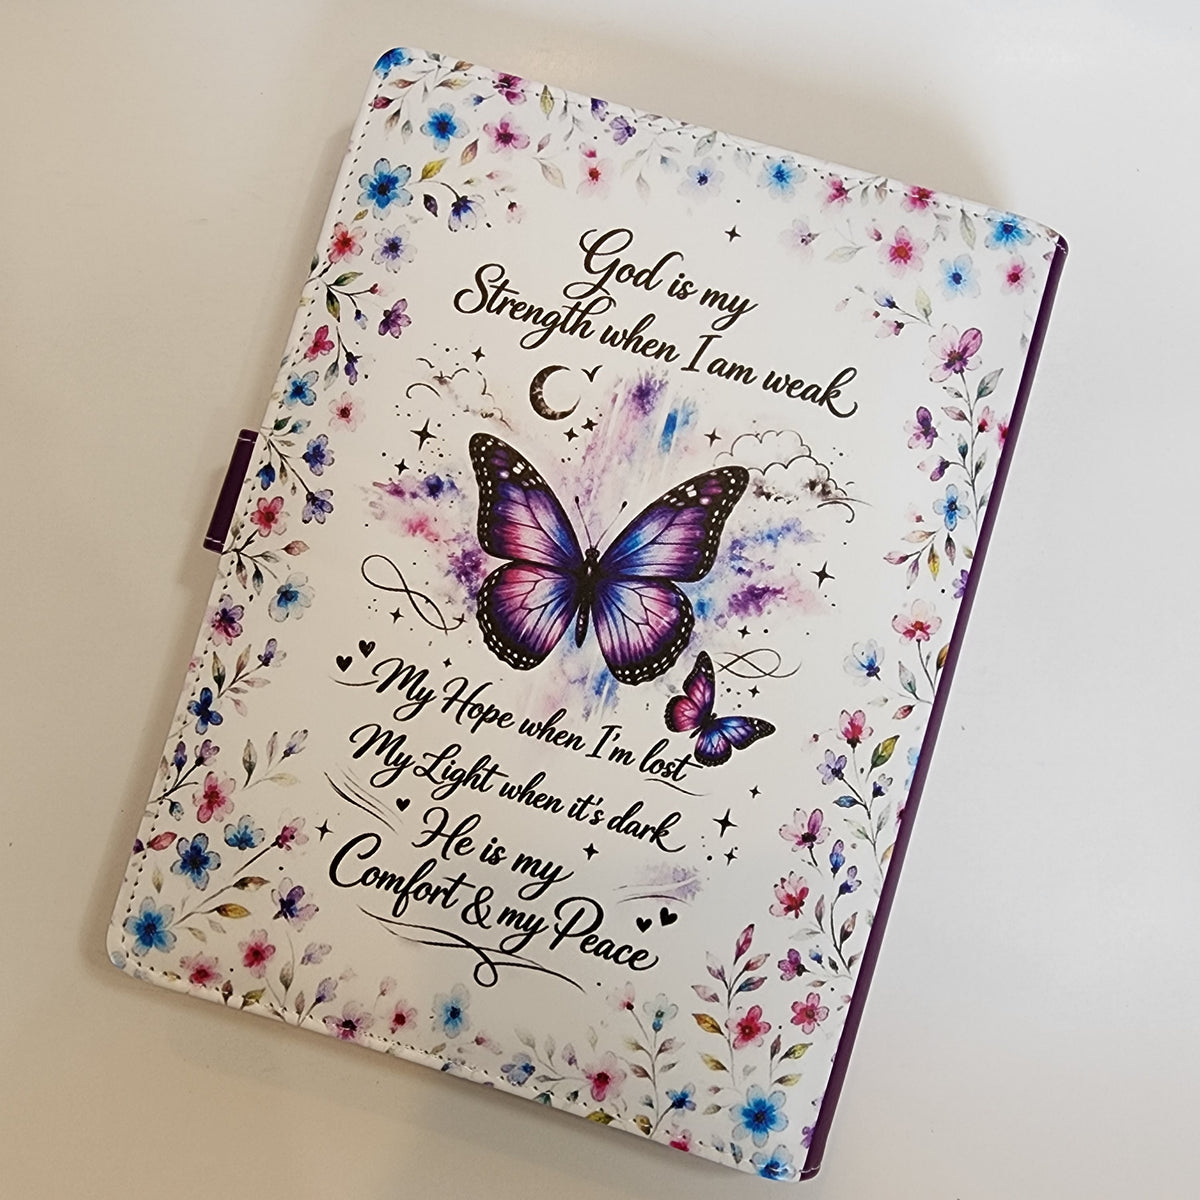 God is my
Strength when I am weak
My Hope when I'm lost
My Light when it's dark
He is my
Comfort & my Peace